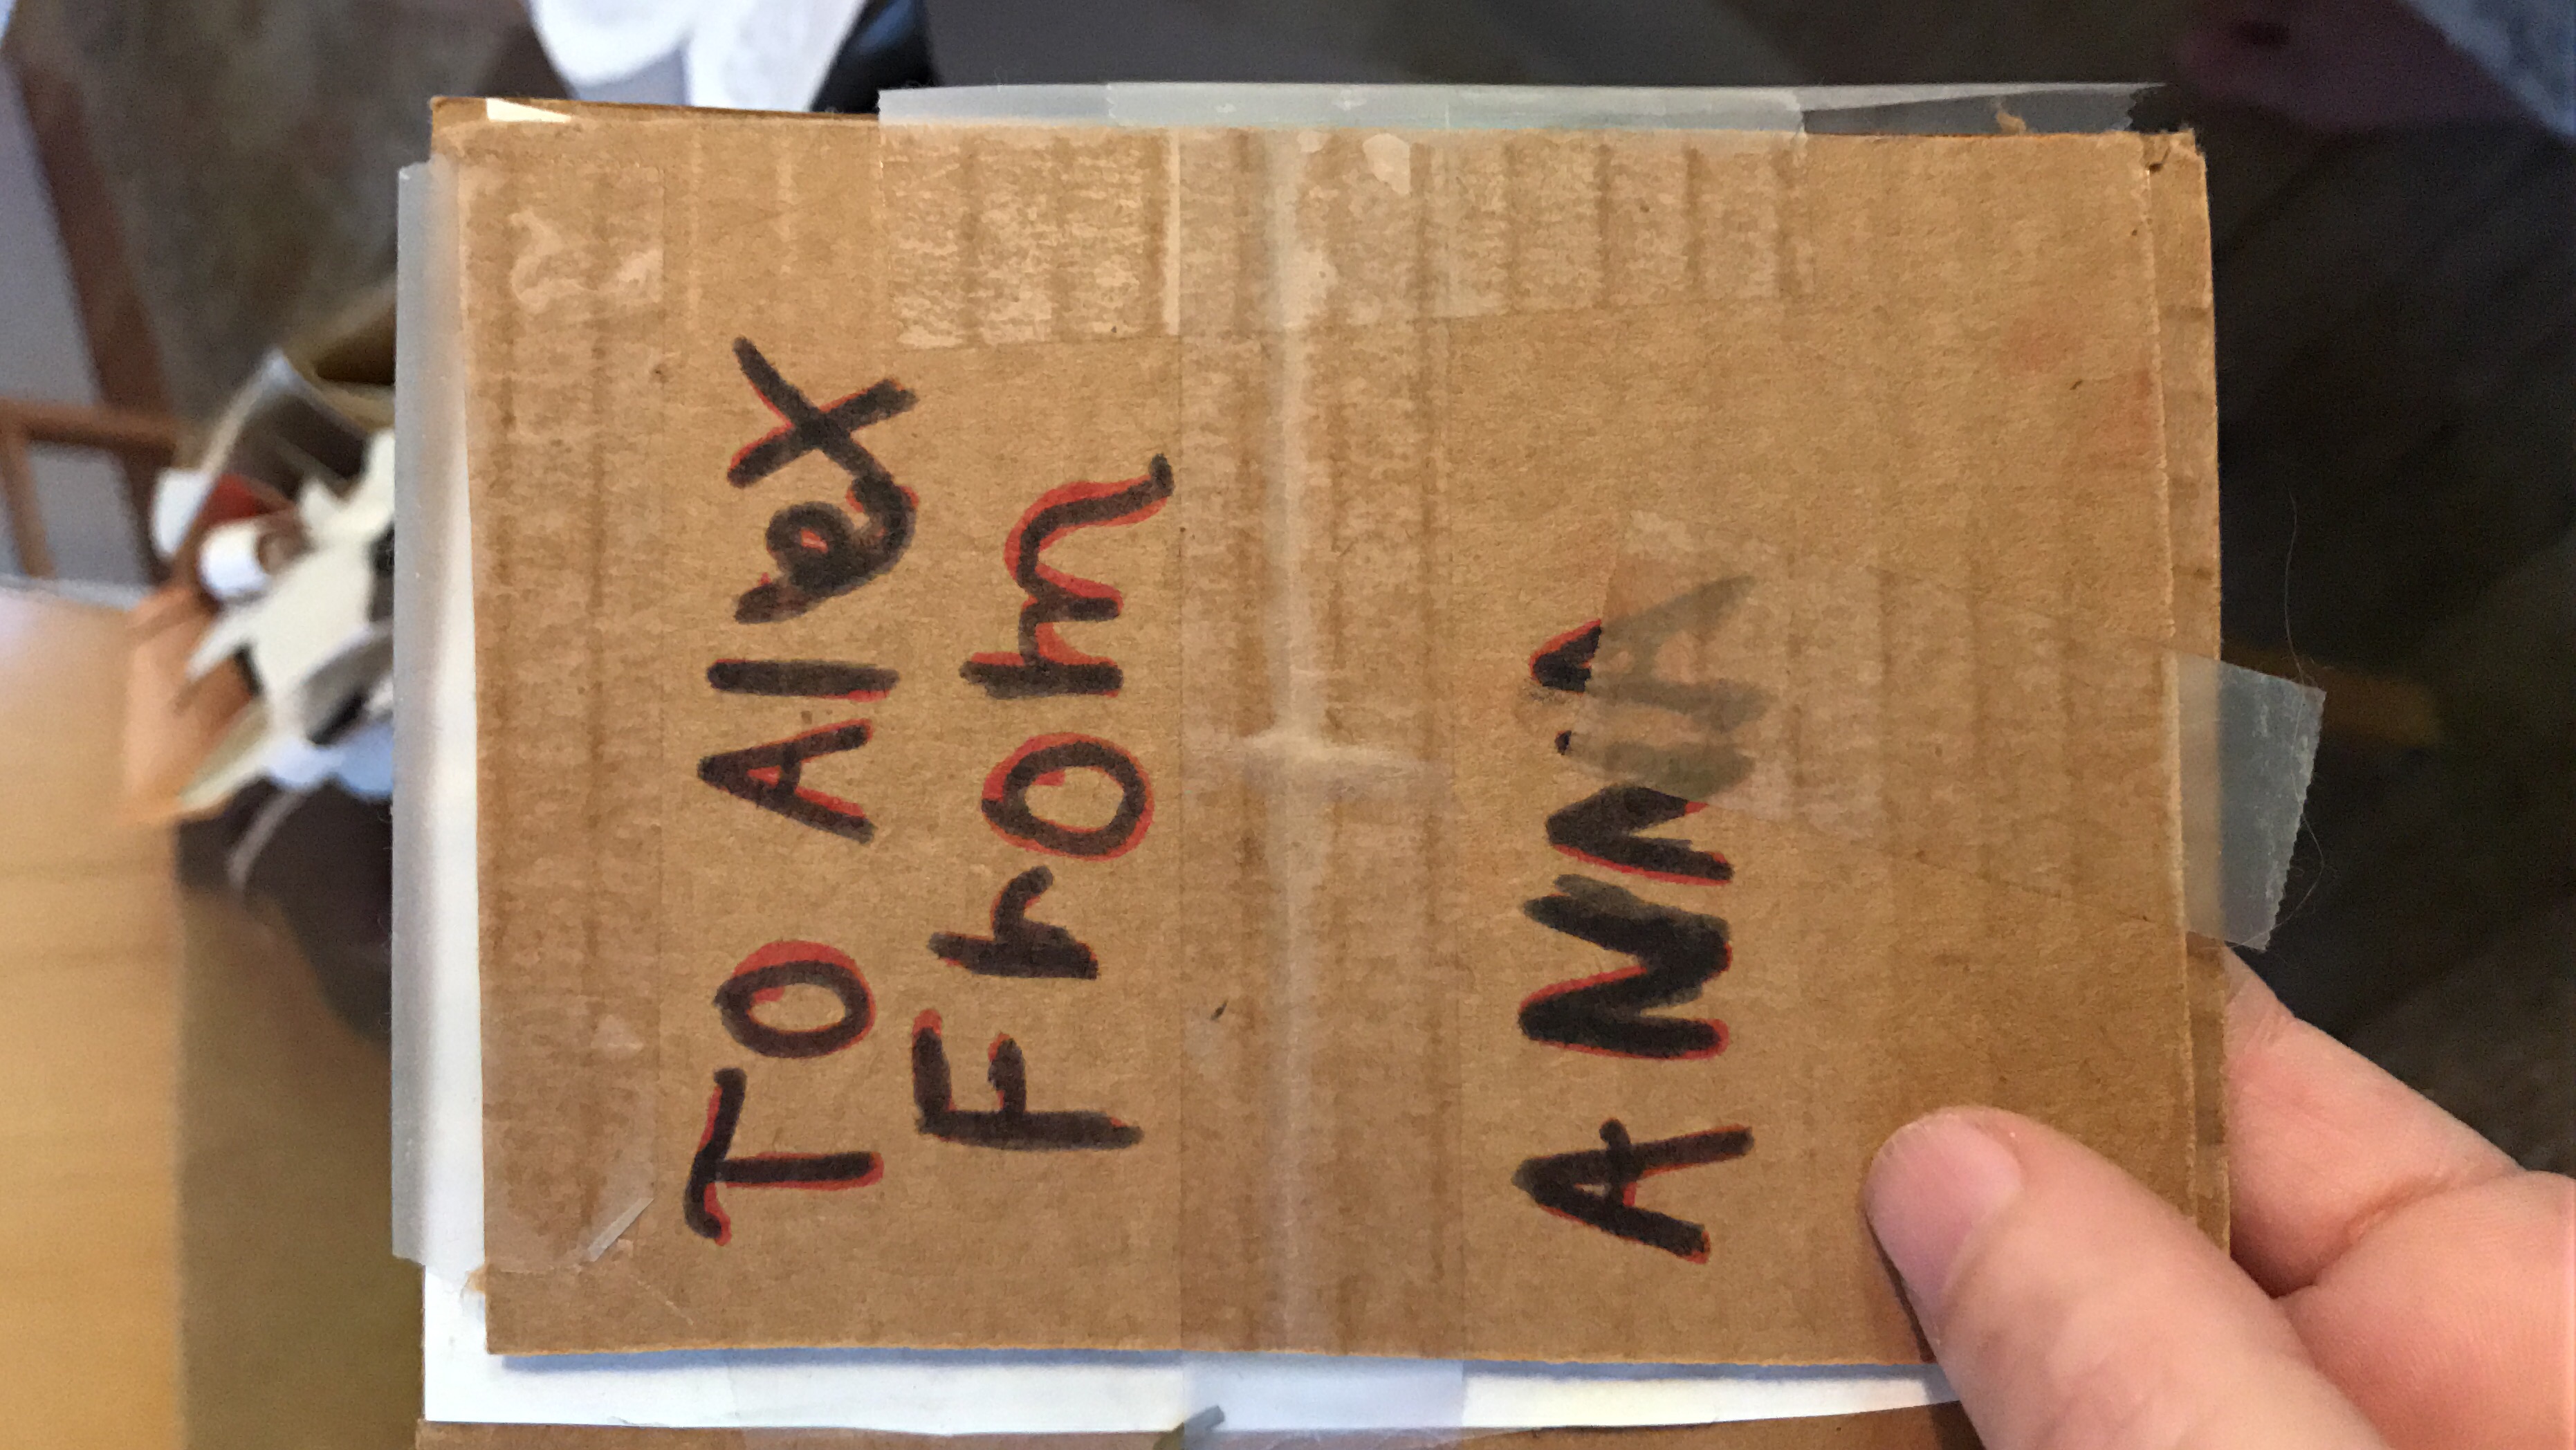 TO Alex
From
ANNA